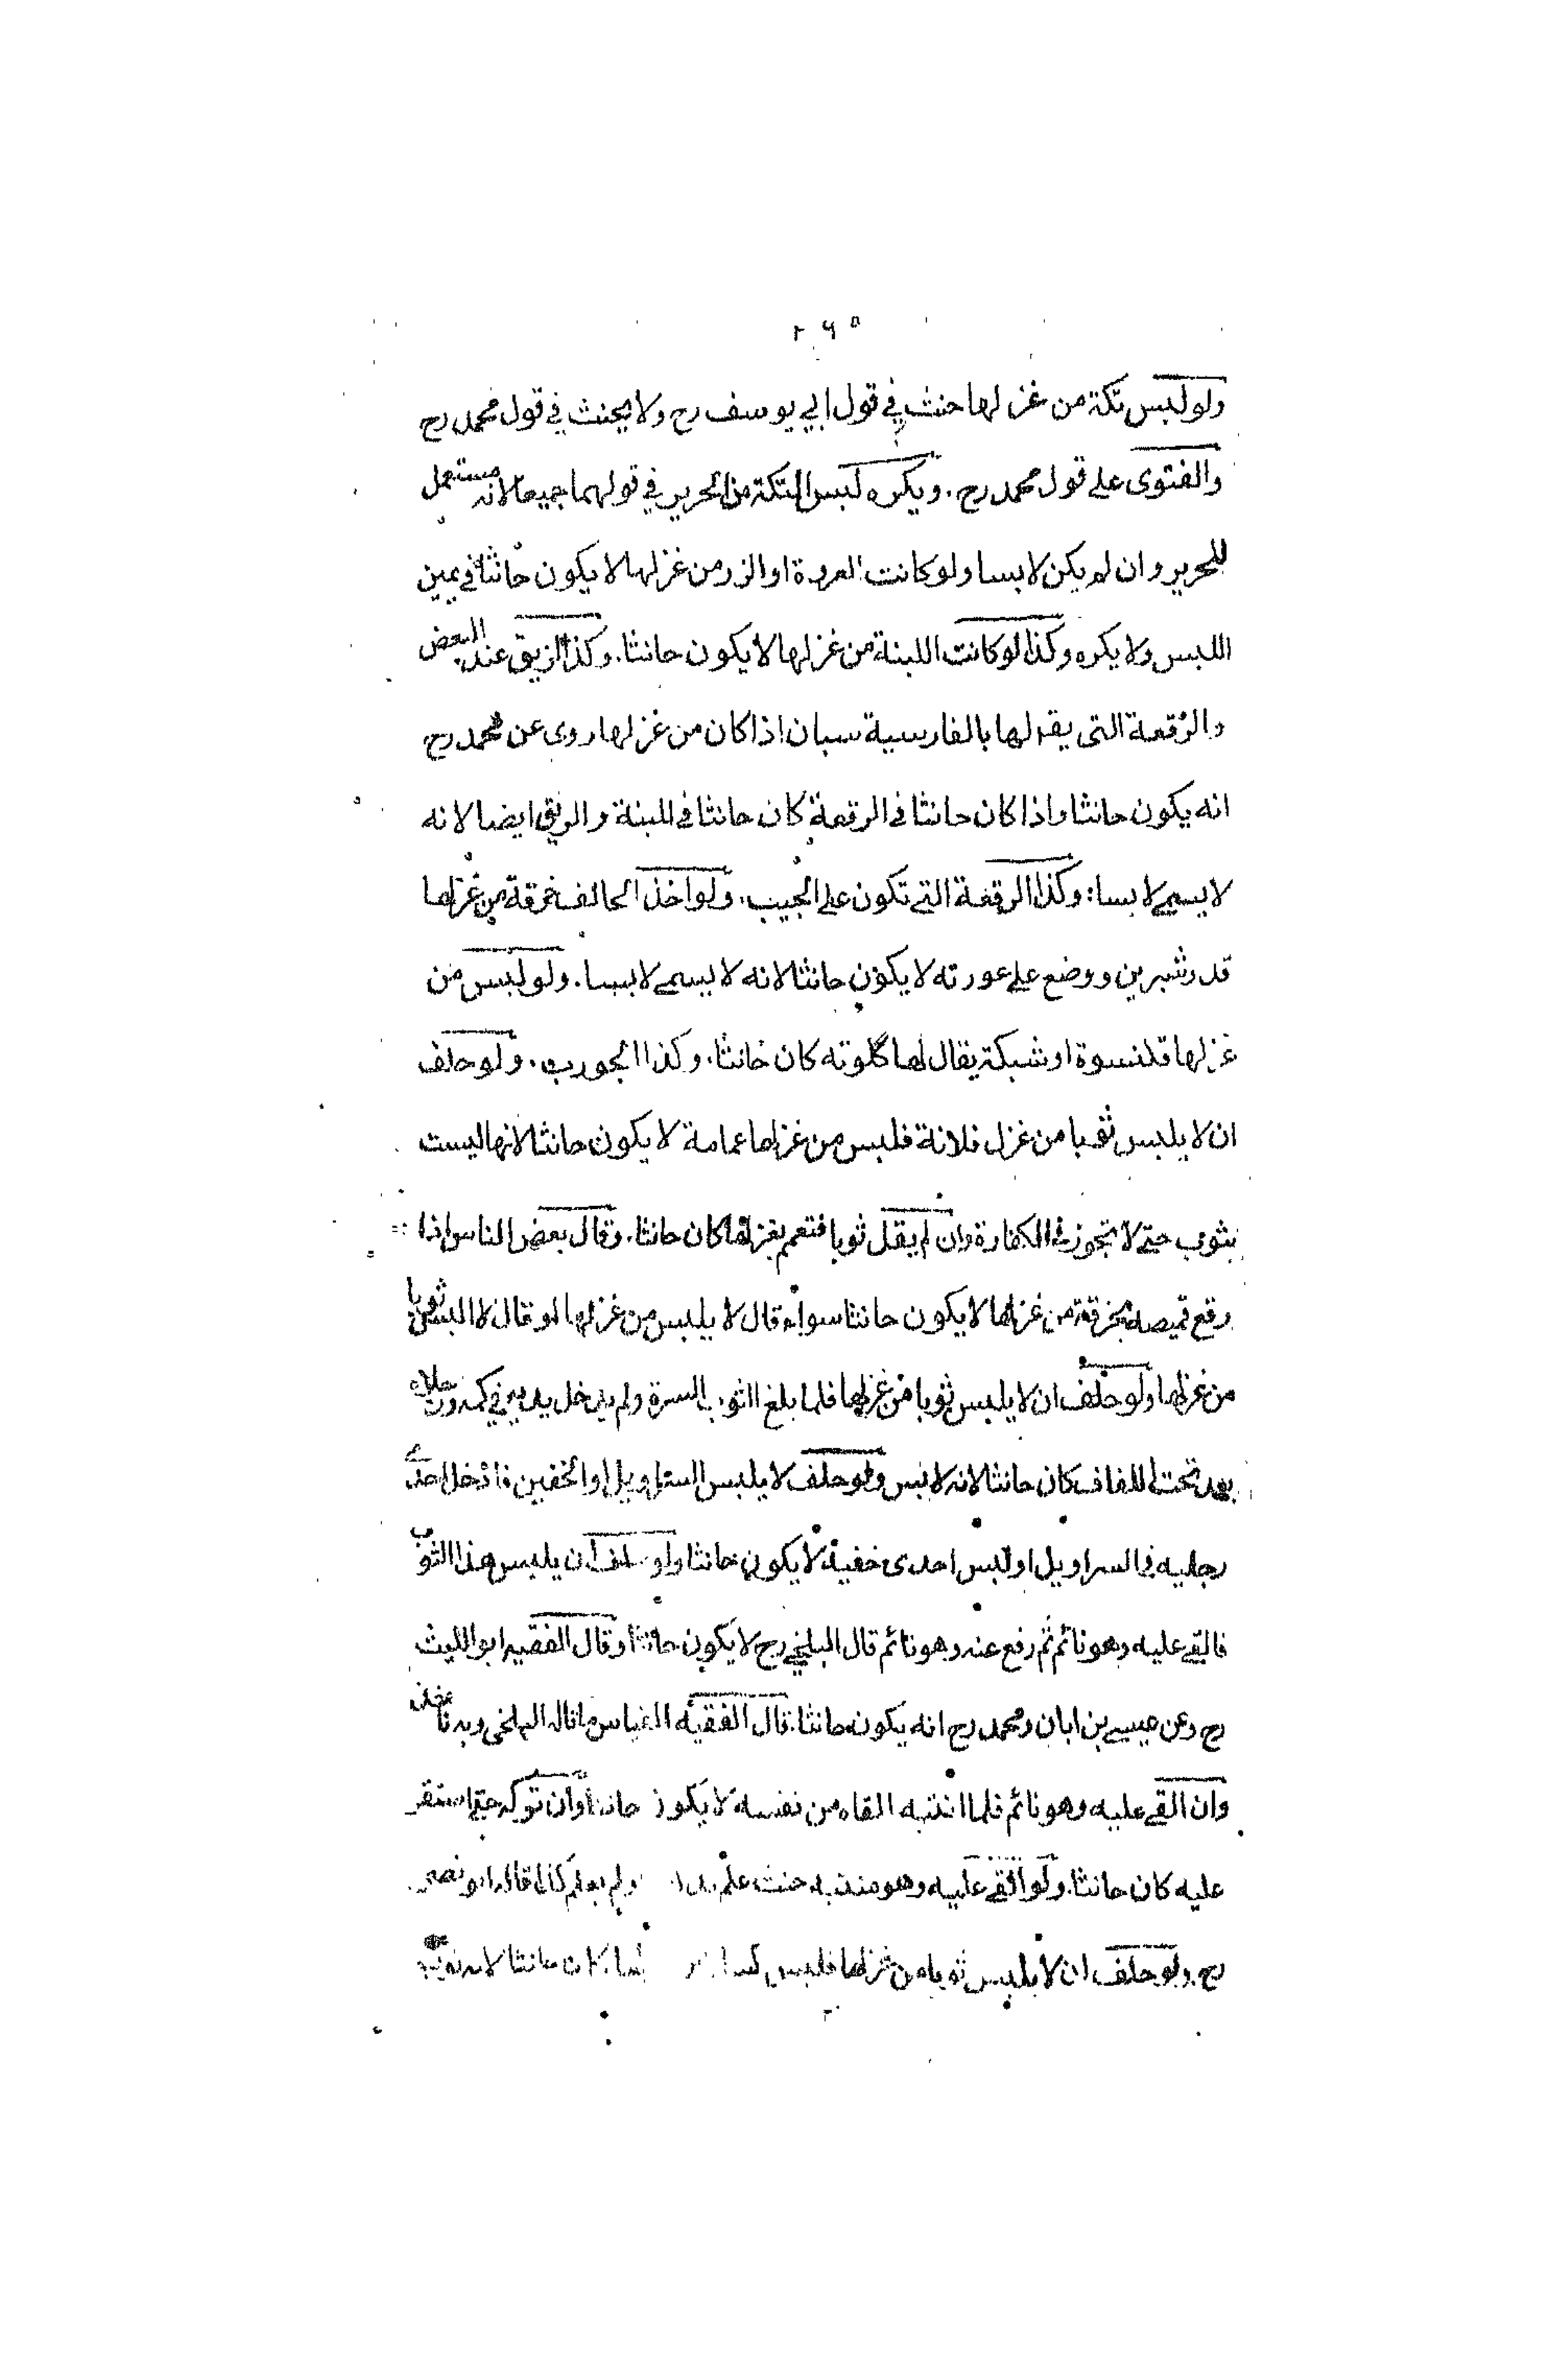 ٢٦٥
ولو لبس تكة من غزلها حنث في قول ابي يوسف رح ولا يحنث في قول محمد رح
والفتوى على قول محمد رح . ويكره لبس التكة من الحرير في قولهما جميعا لانه مستعمل
للحرير وان لم يكن لابسا ولو كانت العروة او الزر من غزلها لا يكون حانثا في يمين
اللبس ولا يكره وكذا لو كانت اللبنة من غزلها لا يكون حانثا . وكذا الزيق عند البعض
والرقعة التى يقل لها بالفارسية سبان اذا كان من غزلها روى عن محمد رح
انه يكون حانثا واذا كان حانثا في الرقعة كان حانثا في اللبنة والزيق ايضا لانه
لا يسمى لابسا : وكذا الرقعة التى تكون على الجيب . ولو اخذ الحالف خرقة من غزلها
قدر شبرين ووضع على عورته لا يكون حانثا لانه لا يسمى لابسا . ولو لبس من
غزلها قلنسوة او شبكة يقال لها گلوته كان حانثا . وكذا الجورب . ولو حلف
ان لا يلبس ثوبا من غزل فلانة فلبس من غزلها عمامة لا يكون حانثا لانها ليست
بثوب حتى لا تجوز في الكفارة وان لم يقل ثوبا فتعمم بغزلها كان حانثا . وقال بعض الناس اذا
رقع قميصه بخرقة من غزلها لا يكون حانثا سواء قال لا يلبس من غزلها او قال لا البس ثوبا
من غزلها ولو حلف ان لا يلبس ثوبا من غزلها فلما بلغ الثوب السرة ولم يدخل يديه في كميه ورجلاه
بعد تحت اللفاف كان حانثا لانه لابس ولو حلف لا يلبس السراويل او الخفين فادخل احدى
رجليه في السراويل او لبس احدى خفيه لا يكون حانثا ولو حلف ان يلبس هذا الثوب
فالقي عليه وهو نائم ثم رفع عنه وهو نائم قال البلخي رح لا يكون حانثا وقال الفقيه ابو الليث
رح وعن عيسى بن ابان ومحمد رح انه يكون حانثا . قال الفقيه القياس ما قال البلخي وبه ناخذ
وان القي عليه وهو نائم فلما انتبه القاه من نفسه لا يكون حانثا وان تركه حتى استقر
عليه كان حانثا . ولو القي عليه وهو منتبه حنث علم ولم يعلم كذا قال ابو نصر
رح . ولو حلف ان لا يلبس ثوبا من غزلها فلبس كساء كان حانثا لانه